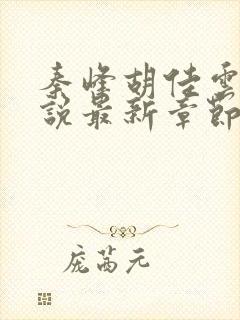 秦峰胡佳雲
說最新章節
庞茜元